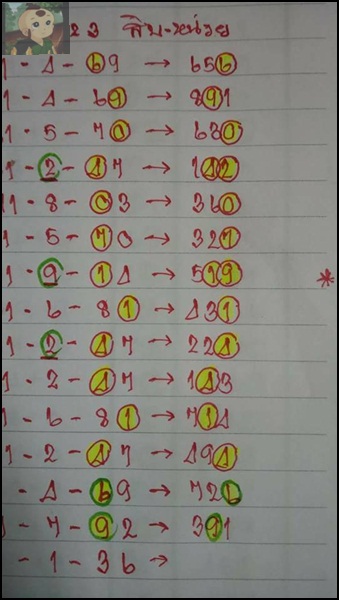 23 สิบ-หน่วย
1 - 4 - 69 → 656
1 - 4 - 69 → 891
1 - 5 - 70 → 630
1 - 2 - 47 → 142
11 - 8 - 03 → 360
1 - 5 - 70 → 327
1 - 9 - 14 → 519 *
1 - 6 - 81 → 431
1 - 2 - 47 → 224
1 - 2 - 47 → 143
1 - 6 - 81 → 714
1 - 2 - 47 → 494
- 4 - 69 → 726
- 7 - 92 → 391
- 1 - 36 →